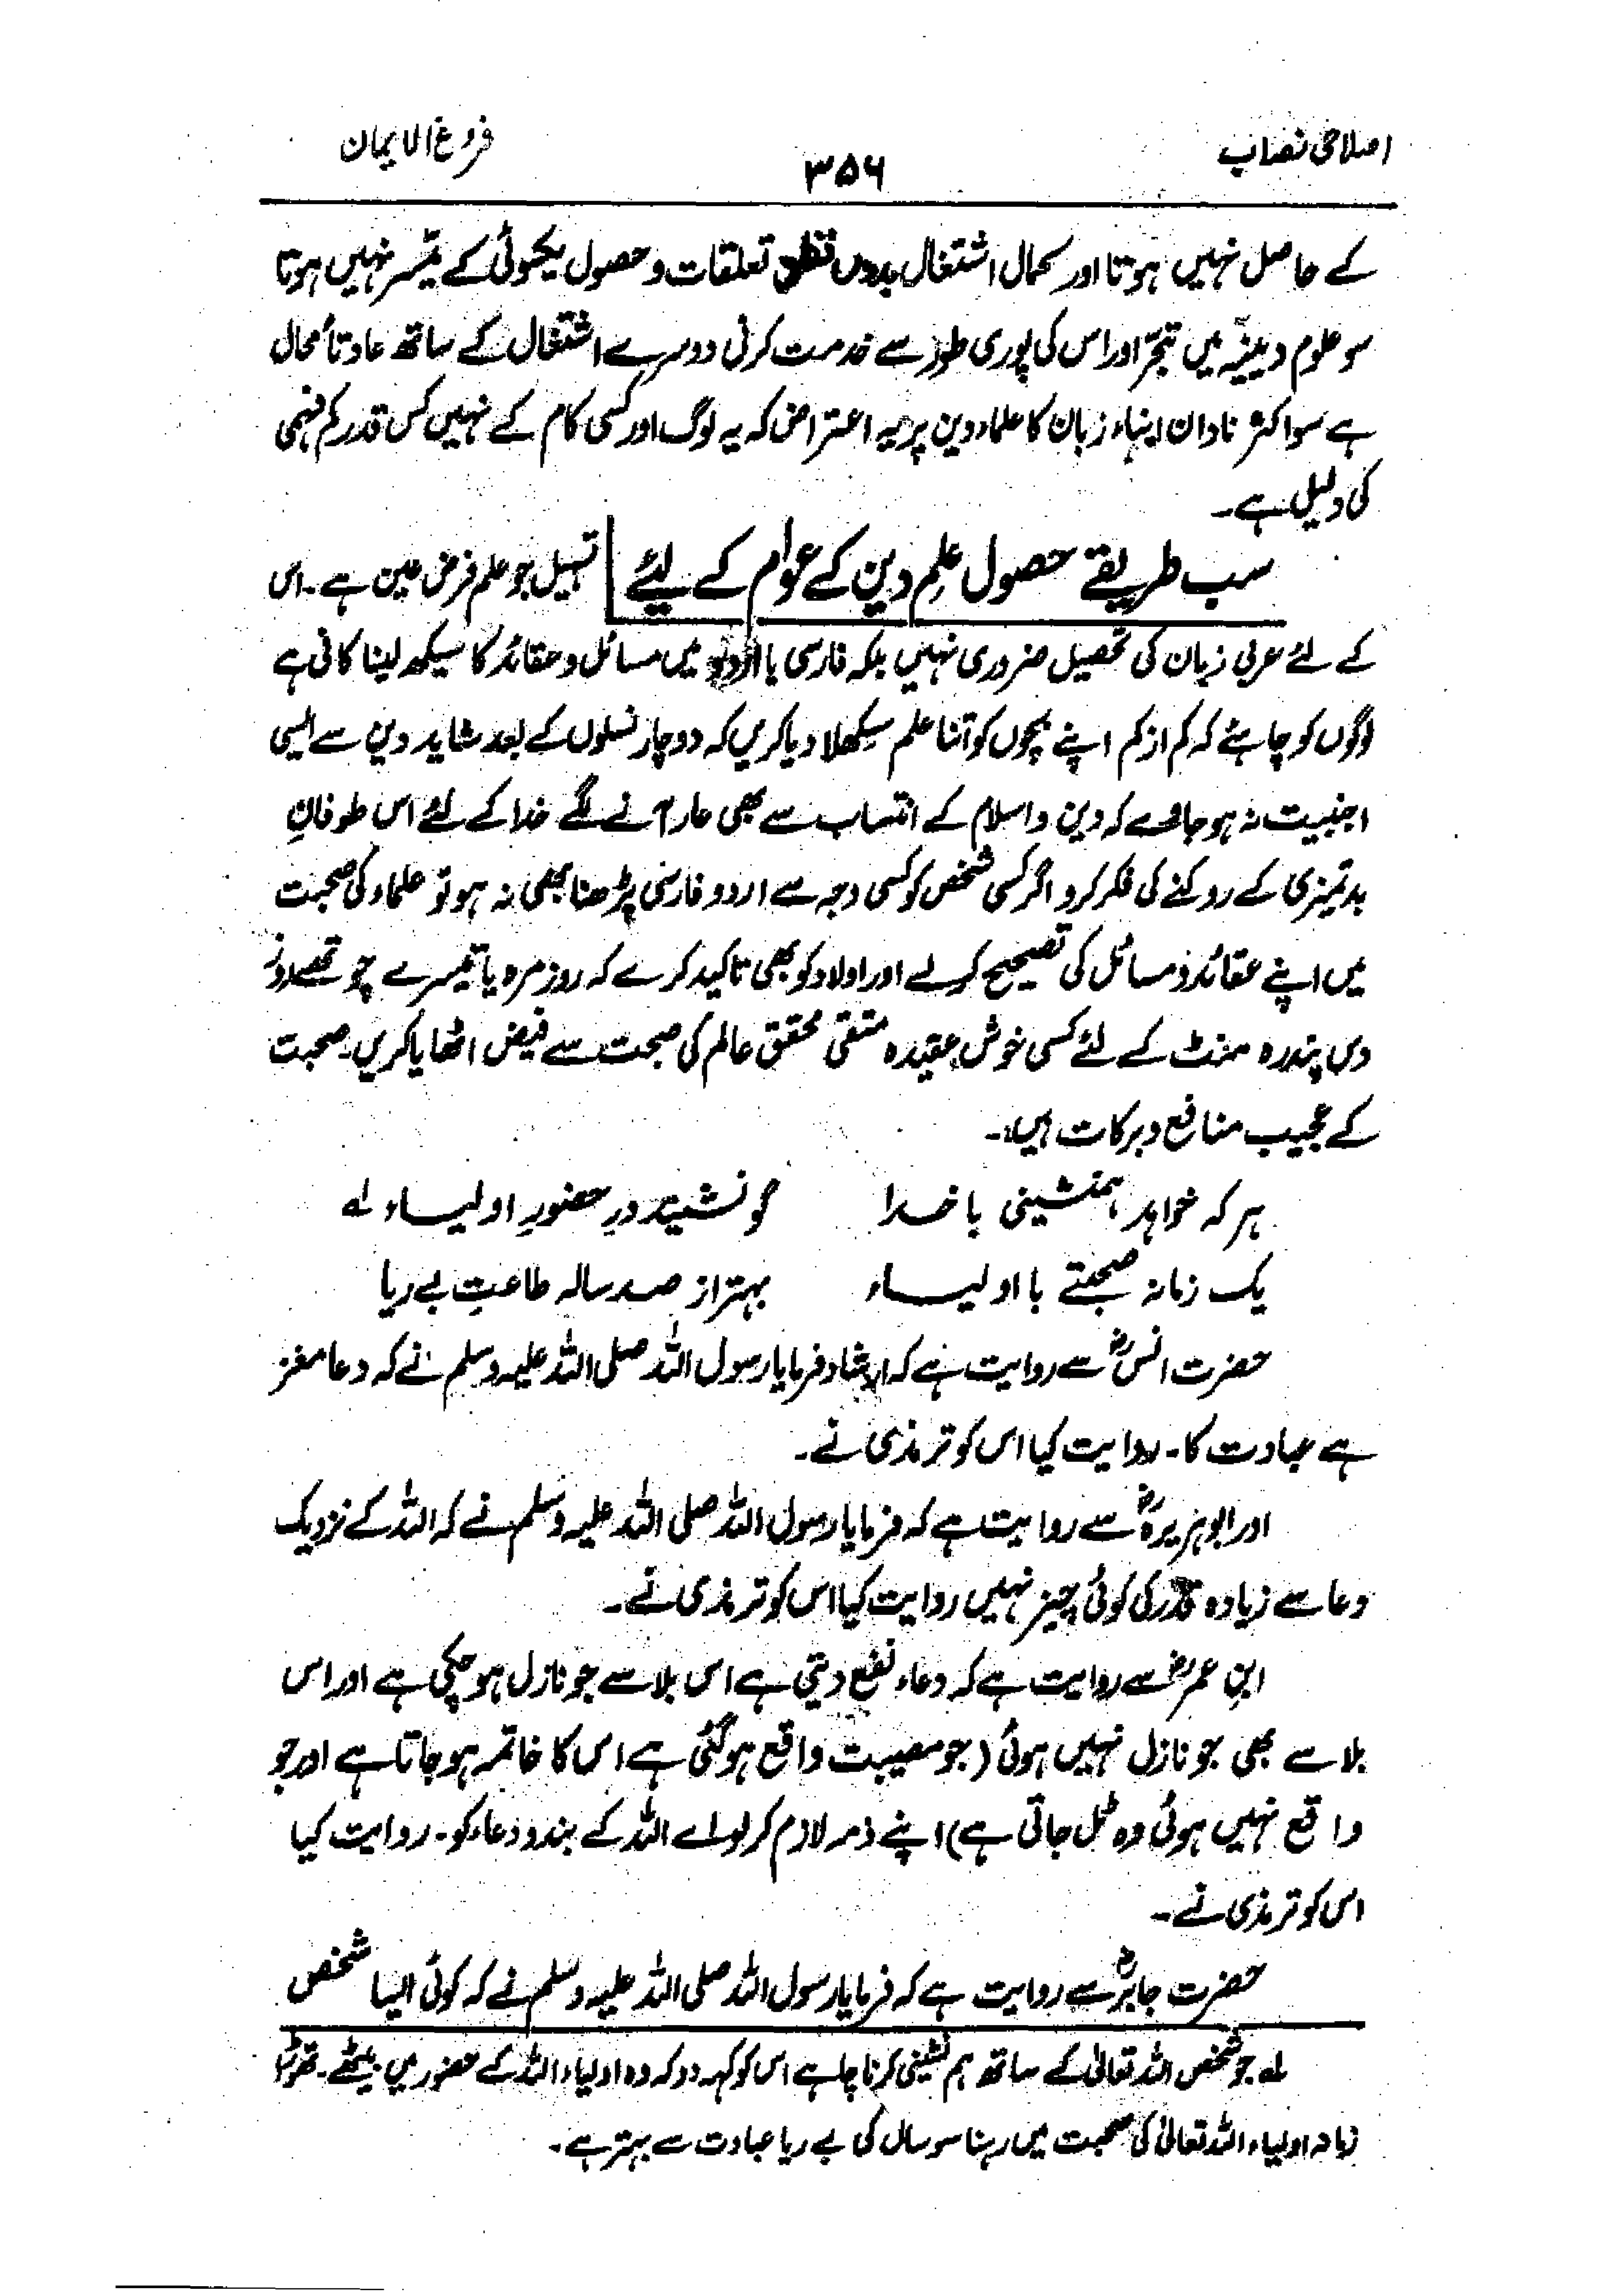 اصلاحی نصاب
۳۵۶
فروغ الایمان
کے حاصل نہیں ہوتا اور کمال اشتغال بدوں قطع تعلقات و حصول یکسوئی کے میسر نہیں ہوتا
سو علوم دینیہ میں تبحّر اور اس کی پوری طور سے خدمت کرنی دوسرے اشتغال کے ساتھ عادتاً محال
ہے سو اکثر نادان ابناء زبان کا علماء دین پر یہ اعتراض کہ یہ لوگ اور کسی کام کے نہیں کس قدر کم فہمی
کی دلیل ہے۔
سب طریقے حصول علمِ دین کے عوام کے لیئے تسہیل جو علم فرض عین ہے۔ اس
کے لئے عربی زبان کی تحصیل ضروری نہیں بلکہ فارسی یا اُردو میں مسائل و عقائد کا سیکھ لینا کافی ہے
لوگوں کو چاہئے کہ کم از کم اپنے بچوں کو اتنا علم سکھلا دیا کریں کہ دو چار نسلوں کے بعد شاید دین سے ایسی
اجنبیت نہ ہو جاوے کہ دین و اسلام کے انتساب سے بھی عار آنے لگے خدا کے لئے اس طوفانِ
بدتمیزی کے روکنے کی فکر کرو اگر کسی شخص کو کسی وجہ سے اردو فارسی پڑھنا بھی نہ ہو تو علماء کی صحبت
میں اپنے عقائد و مسائل کی تصحیح کر لے اور اولاد کو بھی تاکید کرے کہ روز مرہ یا تیسرے چوتھے روز
دس پندرہ منٹ کے لئے کسی خوش عقیدہ متقی محقق عالم کی صحبت سے فیض اٹھایا کریں۔ صحبت
کے عجیب منافع و برکات ہیں۔
ہر کہ خواہد ہمنشینی با خدا گو نشیند در حضورِ اولیاء لہ
یک زمانہ صحبتے با اولیاء بہتر از صد سالہ طاعتِ بے ریا
حضرت انسؓ سے روایت ہے کہ ارشاد فرمایا رسول اللہ صلی اللہ علیہ وسلم نے کہ دعا مغز
ہے عبادت کا۔ روایت کیا اس کو ترمذی نے۔
اور ابوہریرہؓ سے روایت ہے کہ فرمایا رسول اللہ صلی اللہ علیہ وسلم نے کہ اللہ کے نزدیک
دعا سے زیادہ قدر کی کوئی چیز نہیں روایت کیا اس کو ترمذی نے۔
ابنِ عمرؓ سے روایت ہے کہ دعاء نفع دیتی ہے اس بلا سے جو نازل ہو چکی ہے اور اس
بلا سے بھی جو نازل نہیں ہوئی (جو مصیبت واقع ہو گئی ہے اس کا خاتمہ ہو جاتا ہے اور جو
واقع نہیں ہوئی وہ ٹل جاتی ہے) اپنے ذمہ لازم کر لو اے اللہ کے بندو دعاء کو۔ روایت کیا
اس کو ترمذی نے۔
حضرت جابرؓ سے روایت ہے کہ فرمایا رسول اللہ صلی اللہ علیہ وسلم نے کہ کوئی ایسا شخص
لہ جو شخص اللہ تعالیٰ کے ساتھ ہم نشینی کرنا چاہے اس کو کہہ دو کہ وہ اولیاء اللہ کے حضور میں بیٹھے۔ تھوڑا
زمانہ اولیاء اللہ تعالیٰ کی صحبت میں رہنا سو سال کی بے ریا عبادت سے بہتر ہے۔